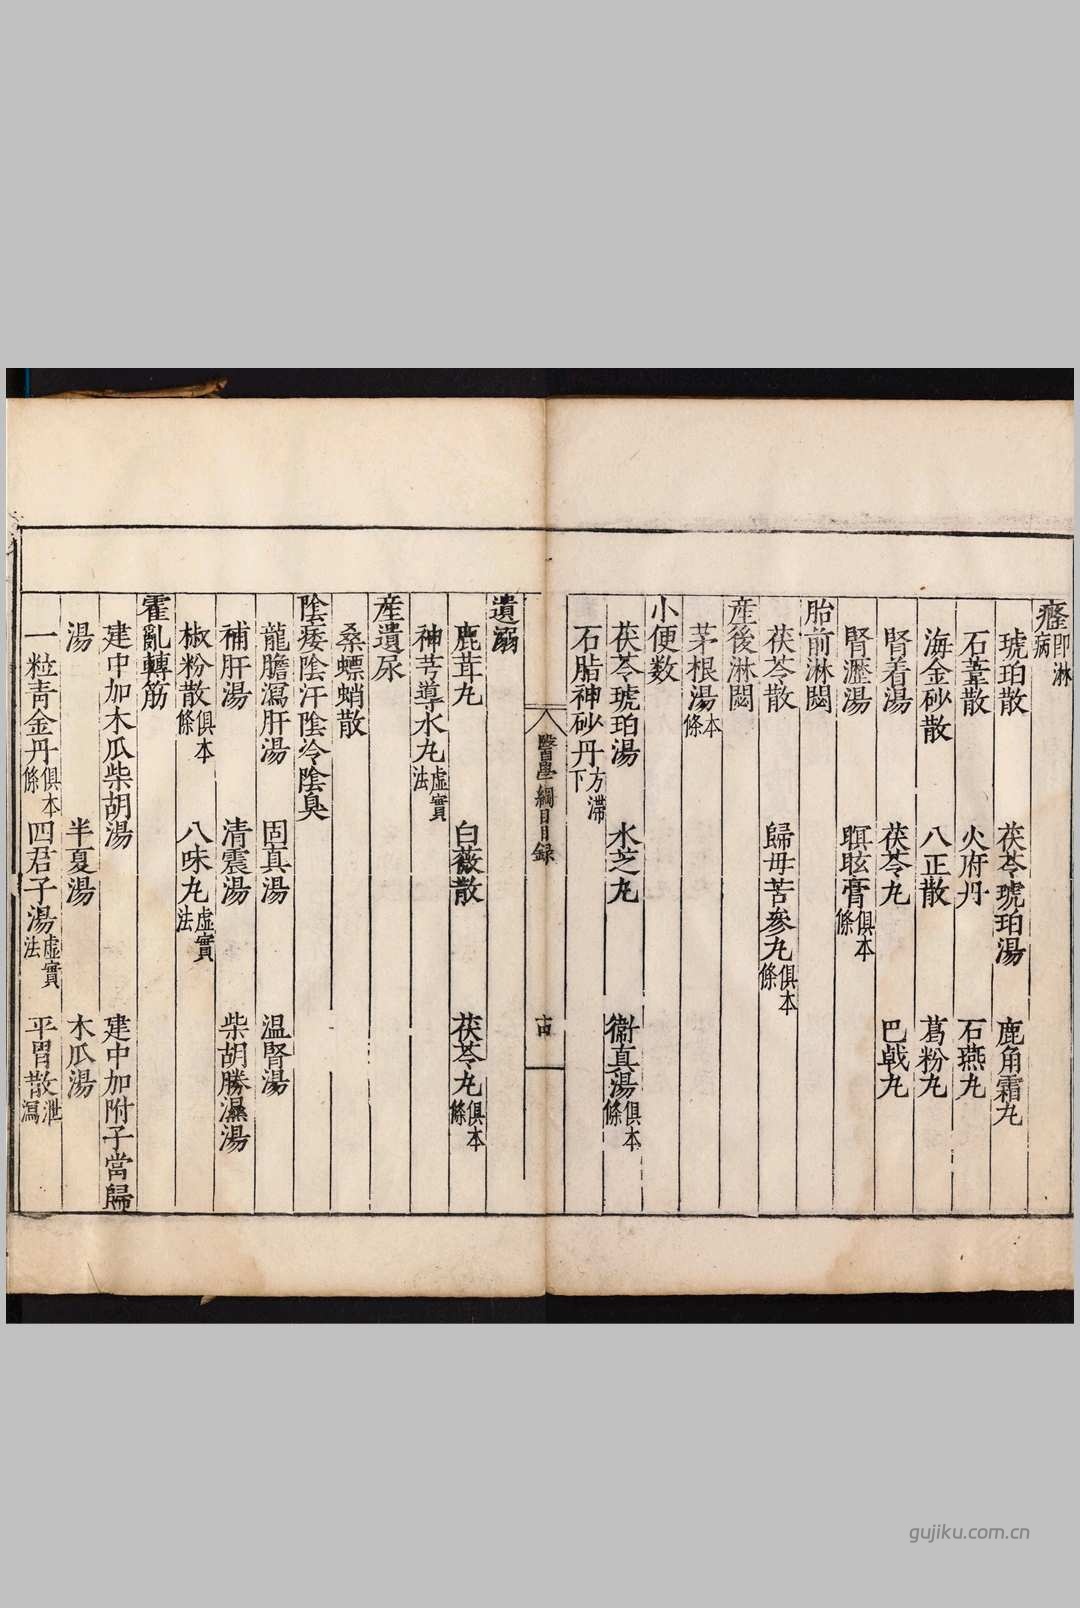 癃即淋病
琥珀散 茯苓琥珀湯 鹿角霜丸
石葦散 火府丹 石燕丸
海金砂散 八正散 葛粉丸
腎着湯 茯苓丸 巴戟丸
腎瀝湯 瞑眩膏俱本條
胎前淋閟
茯苓散 歸母苦參丸俱本條
産後淋閟
茅根湯本條
小便数
茯苓琥珀湯 水芝丸 衞真湯俱本條
石脂神砂丹方滞下
醫學綱目目録 十四
遺溺
鹿茸丸 白薇散 茯苓丸俱本條
神芎導水丸虛實法
産遺尿
桑螵蛸散
陰痿陰汗陰冷陰臭
龍膽瀉肝湯 固真湯 温腎湯
補肝湯 清震湯 柴胡勝濕湯
椒粉散俱本條 八味丸虛實法
霍亂轉筋
建中加木瓜柴胡湯 建中加附子當歸
湯 半夏湯 木瓜湯
一粒青金丹俱本條 四君子湯虛實法 平胃散泄瀉
gujiku.com.cn